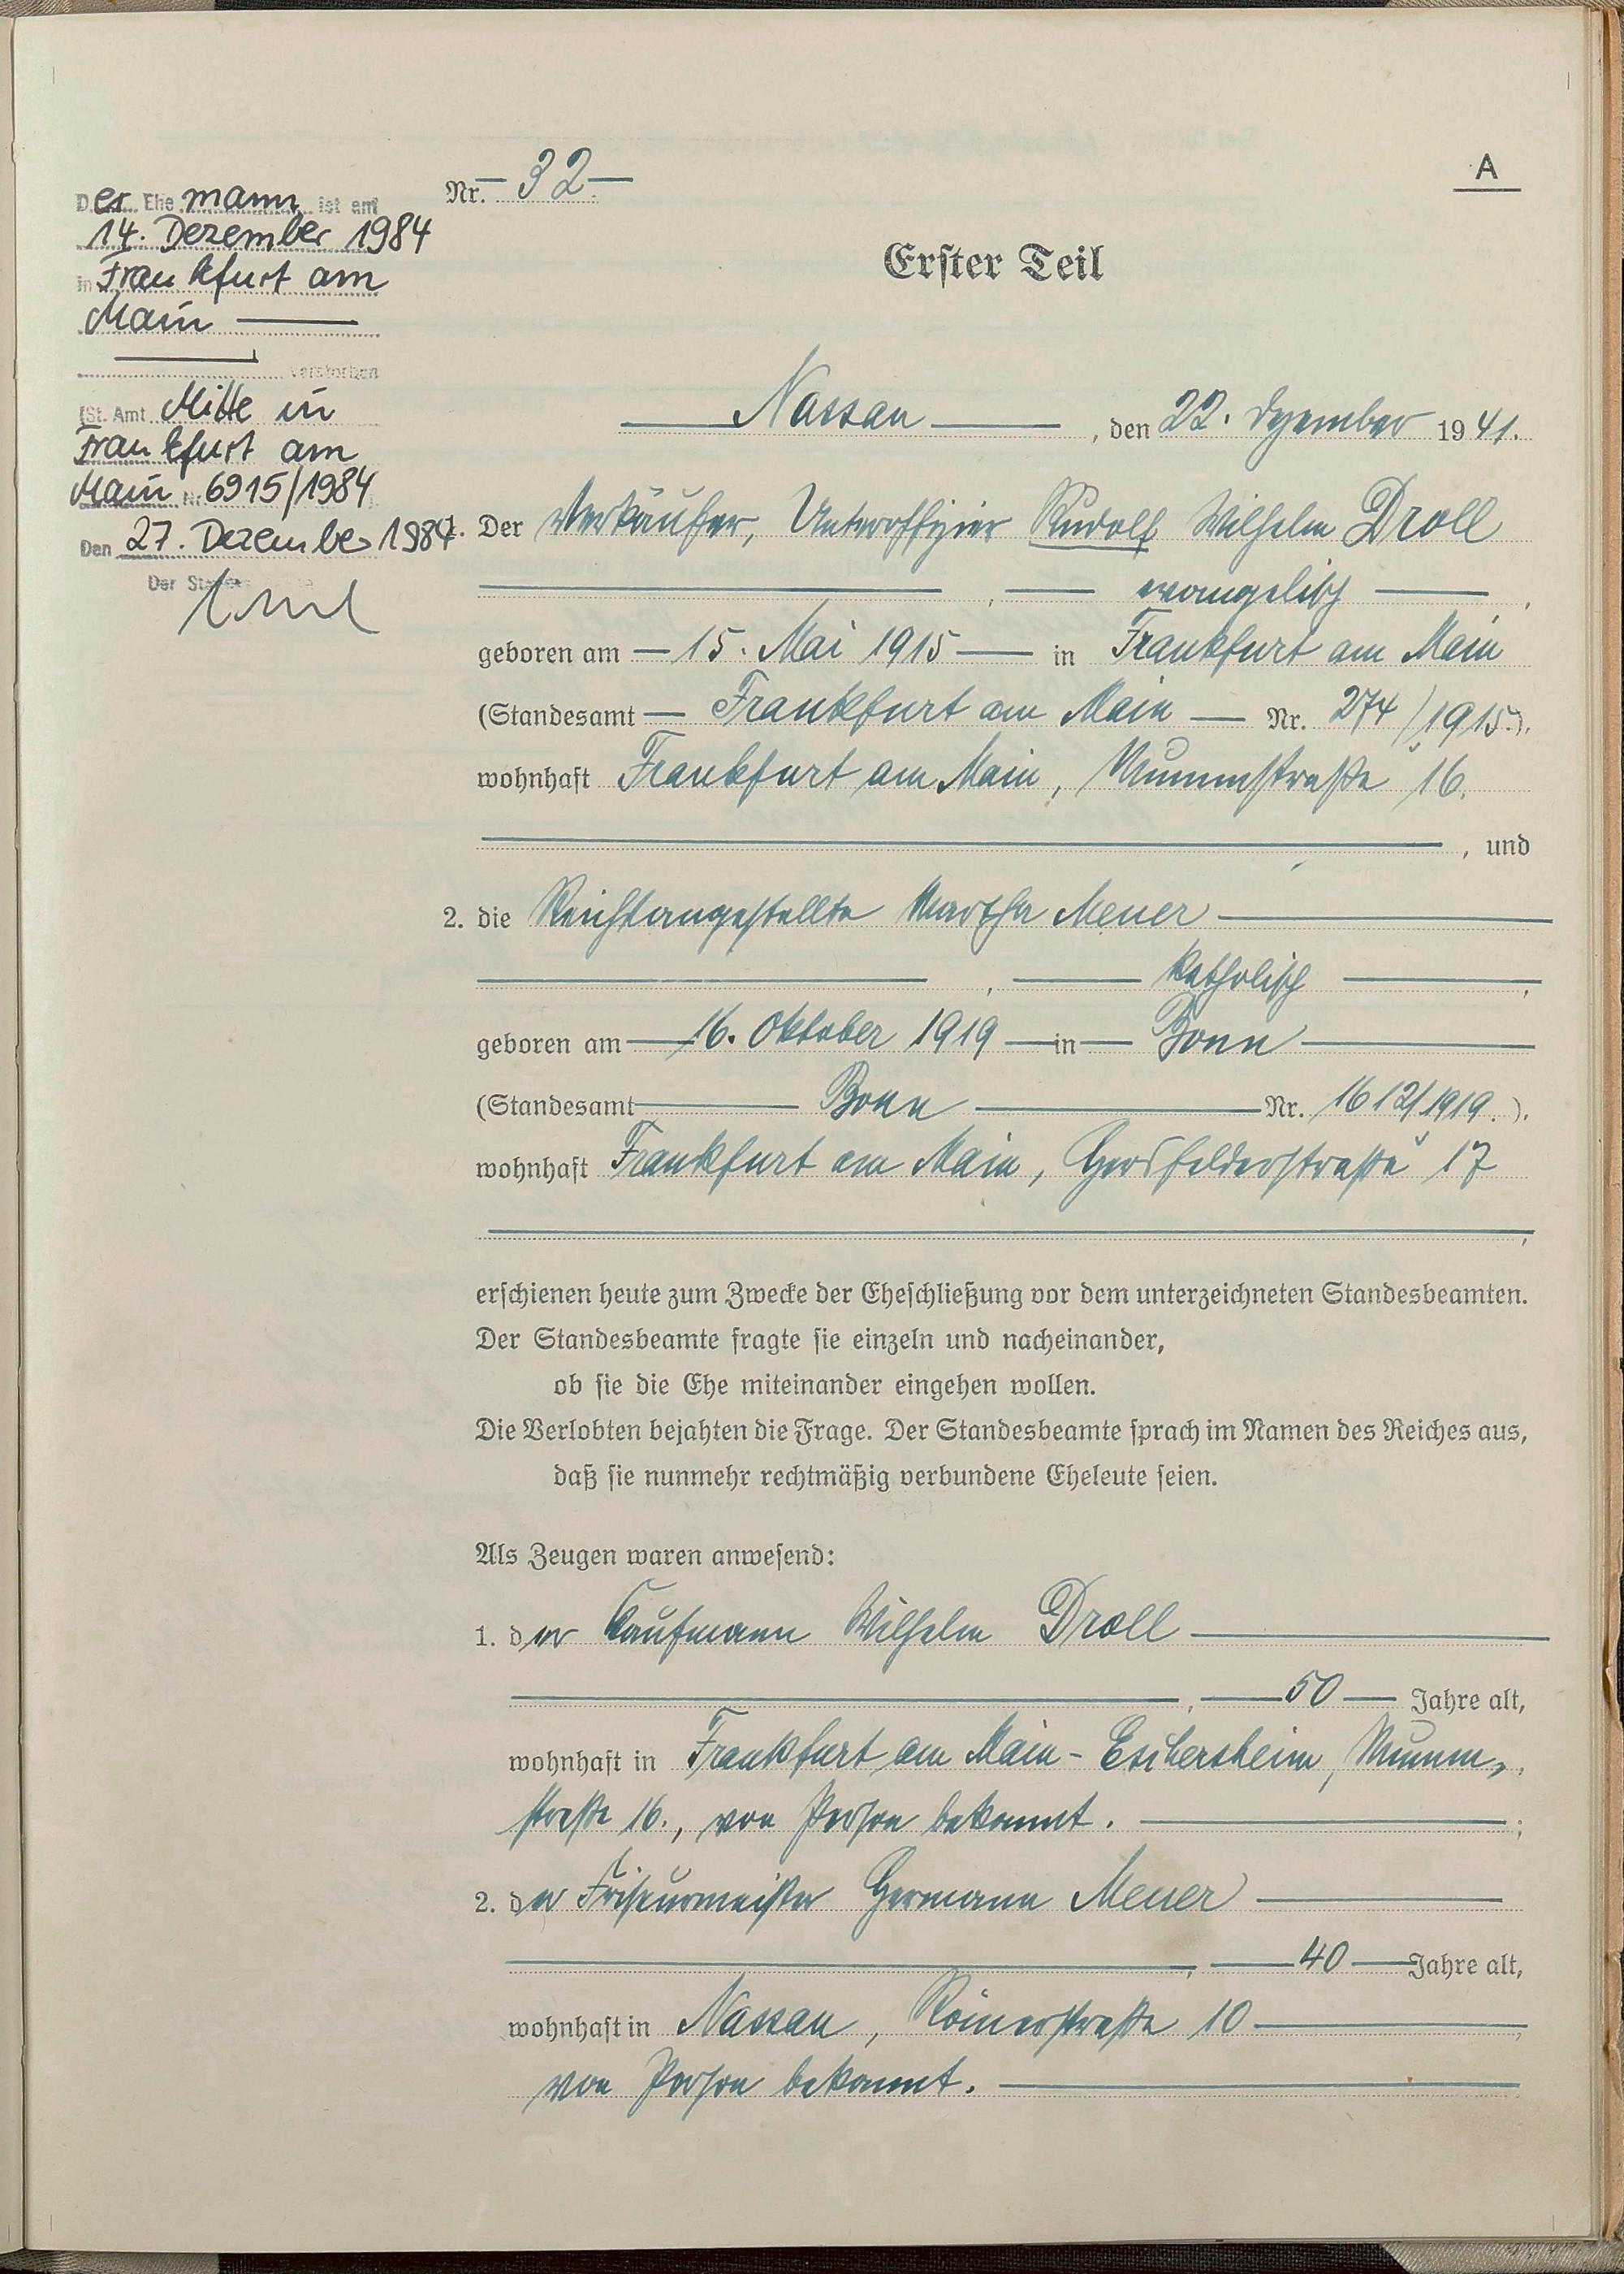 A
Nr. — 32 —
Erster Teil
Nassau , den 22. Dezember 1941.
1. Der Verkäufer, Unteroffizier Rudolf Wilhelm Droll
, evangelisch ,
geboren am 15. Mai 1915 in Frankfurt am Main
(Standesamt Frankfurt am Main Nr. 274/1915),
wohnhaft Frankfurt am Main, Mummstraße 16.
, und
2. die Reichsangestellte Martha Meuer
, katholisch ,
geboren am 16. Oktober 1919 in Bonn
(Standesamt Bonn Nr. 1612/1919.),
wohnhaft Frankfurt am Main, Hersfelderstraße 17
,
erschienen heute zum Zwecke der Eheschließung vor dem unterzeichneten Standesbeamten.
Der Standesbeamte fragte sie einzeln und nacheinander,
ob sie die Ehe miteinander eingehen wollen.
Die Verlobten bejahten die Frage. Der Standesbeamte sprach im Namen des Reiches aus,
daß sie nunmehr rechtmäßig verbundene Eheleute seien.
Als Zeugen waren anwesend:
1. der Kaufmann Wilhelm Droll
, 50 Jahre alt,
wohnhaft in Frankfurt am Main-Eschersheim, Mumm-
straße 16., von Person bekannt. ;
2. der Friseurmeister Hermann Meuer
, 40 Jahre alt,
wohnhaft in Nassau, Römerstraße 10 ,
von Person bekannt.
Der Ehemann ist am
14. Dezember 1984
in Frankfurt am
Main
verstorben
(St. Amt Mitte in
Frankfurt am
Main Nr. 6915/1984
Den 27. Dezember 1984
Der